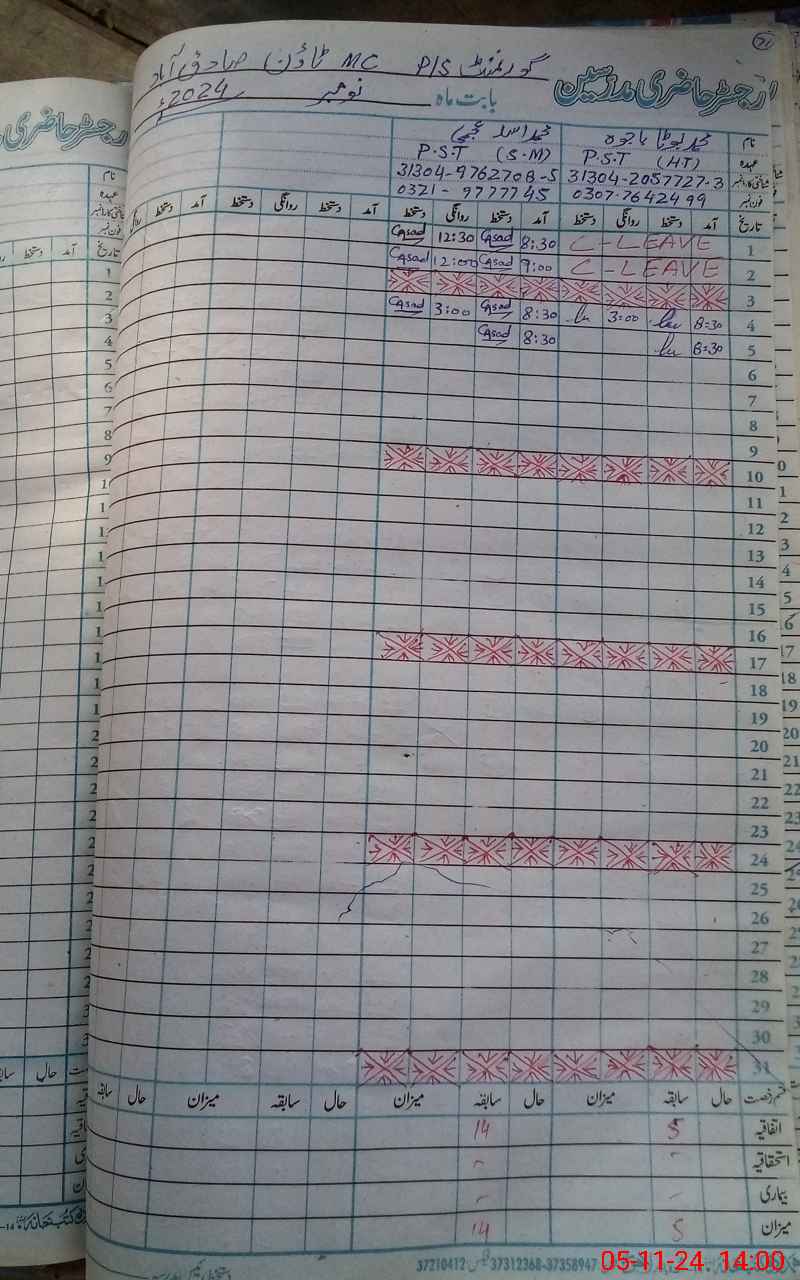 71
گورنمنٹ P/S MC ٹاؤن صادق آباد
رجسٹر حاضری مدرسین
بابت ماہ نومبر 2024ء
نام محمد بوٹا باجوہ محمد اسد
عہدہ P.S.T (HT) P.S.T (S.M)
شناختی کارڈ نمبر 31304-2057727-3 31304-9762708-5
فون نمبر 0307-7642499 0321-9777745
تاریخ آمد دستخط روانگی دستخط آمد دستخط روانگی دستخط آمد دستخط روانگی دستخط
1 C-LEAVE 8:30 Asad 12:30 Asad
2 C-LEAVE 9:00 Asad 12:00 Asad
3
4 8=30 3:00 8:30 Asad 3:00 Asad
5 8=30 8:30 Asad
6
7
8
9
10
11
12
13
14
15
16
17
18
19
20
21
22
23
24
25
26
27
28
29
30
31
قسم رخصت حال سابقہ میزان حال سابقہ میزان حال سابقہ میزان حال سابقہ
اتفاقیہ 5 14
استحقاقیہ - -
بیماری - -
میزان 5 14
37210412 فیکس 37312368-37358947
05-11-24 14:00
رجسٹر حاضری
نام
عہدہ
شناختی کارڈ نمبر
فون نمبر
تاریخ آمد دستخط
1
2
3
4
5
6
7
8
9